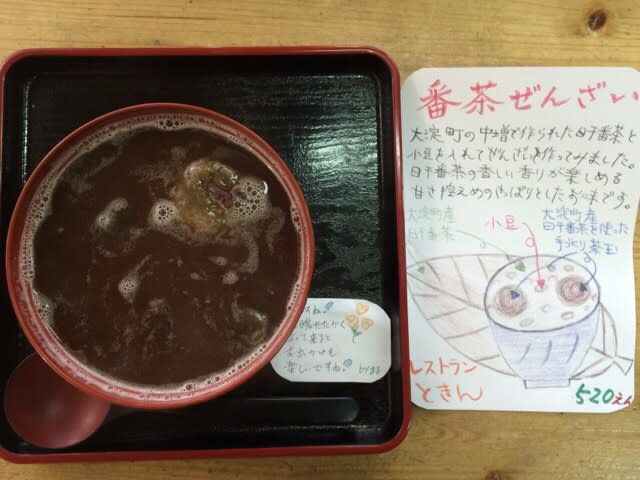 番茶ぜんざい
大淀町の中増で作られた日干番茶と
小豆を入れてぜんざいを作ってみました。
日干番茶の香い香りが楽しめる
甘さ控えめのさっぱりとしたお味です。
大淀町産
日干番茶
小豆
大淀町産
日干番茶を使った
手づくり茶玉
レストラン
ときん
520えん
すね
暖かく
なって来ると
お出かけも
楽しいですね